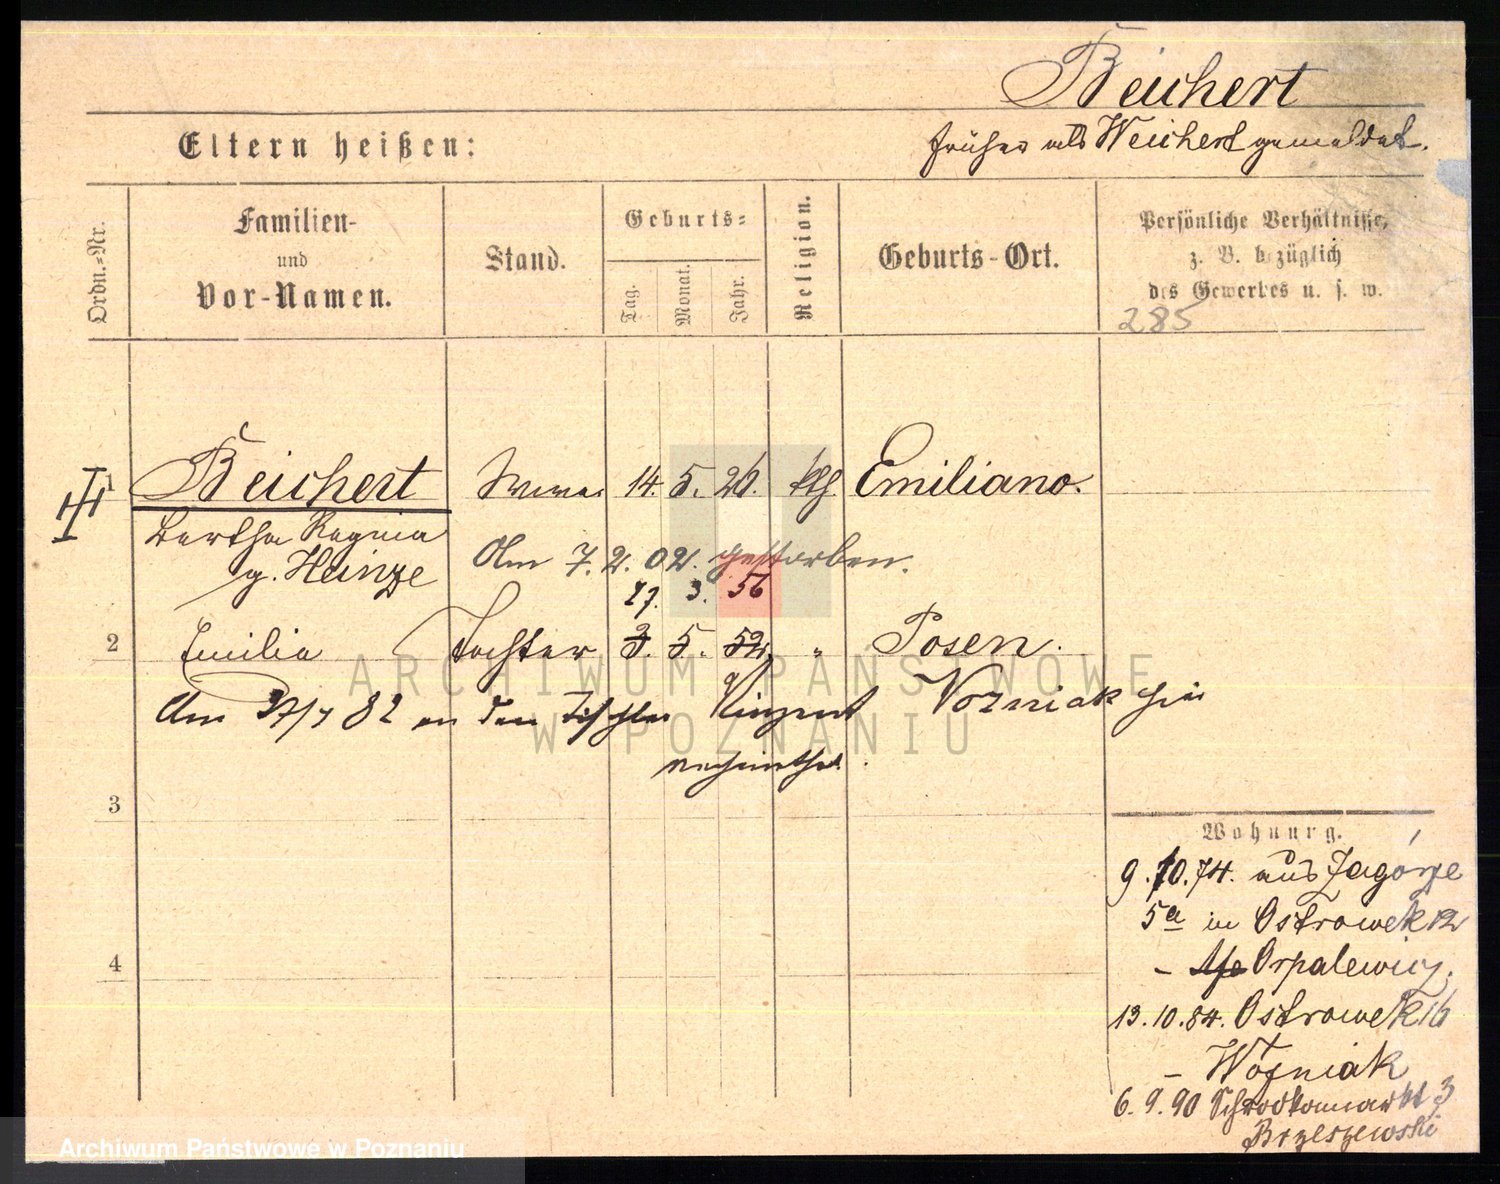 Beichert
früher als Weichert gemeldet.
Eltern heißen:
Ordn.-Nr.
Familien-
und
Vor-Namen.
Stand.
Geburts-
Tag.
Monat.
Jahr.
Religion.
Geburts-Ort.
Persönliche Verhältnisse,
z. B. bezüglich
des Gewerbes u. s. w.
285
1 Beichert 14. 5. 26. kth. Emiliano.
Bertha Regina
g. Heinze
Am 7.2.02. gestorben.
27. 3. 56
2 Emilia Tochter 3. 5. 52. " Posen.
Am 27/7 82 an den Tischler Vinzent Vozniak hier
verheirathet.
3
4
Wohnung.
9.10.74. aus Zagórze
5a in Ostrowek 12
- Orpalewicz.
13.10.84. Ostrowek 16
- Wozniak
6.9.90 Schrodkamarkt 3
Brzeszewski
ARCHIWUM PAŃSTWOWE
W POZNANIU
Archiwum Państwowe w Poznaniu